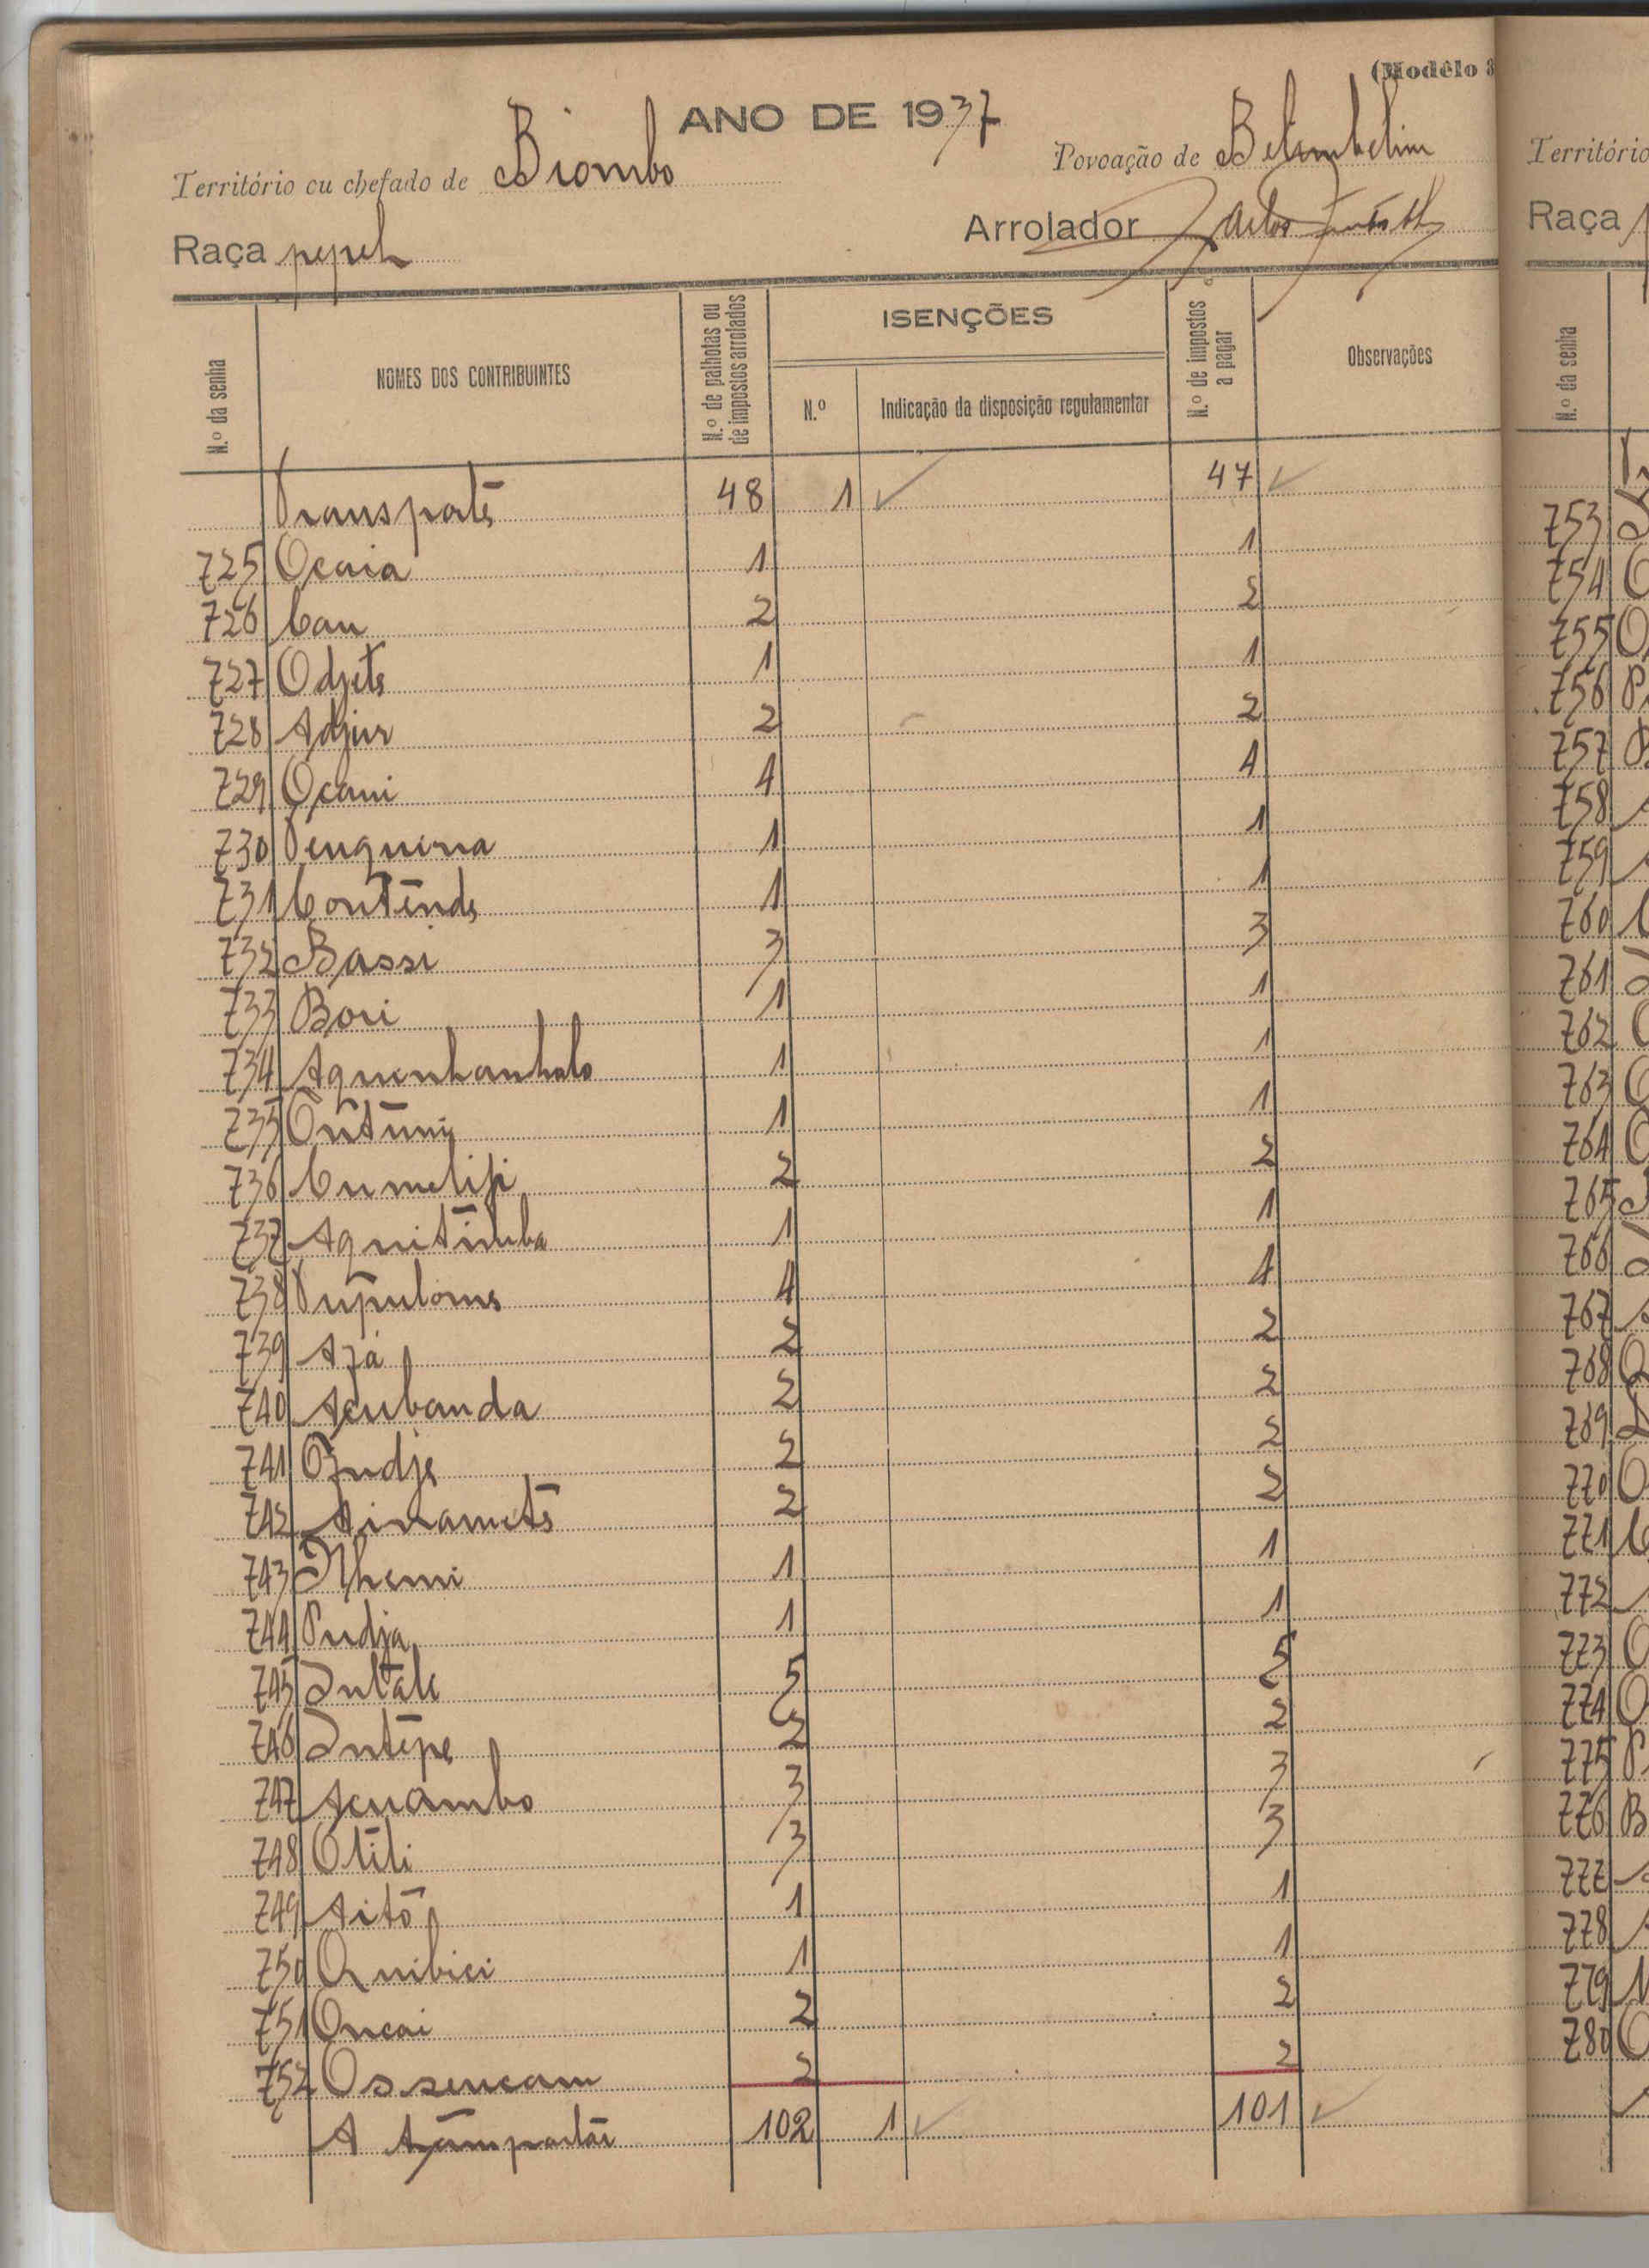 (Modêlo 8
ANO DE 1937
Território ou chefado de Biombo
Povoação de Belimbelim
Raça pepel
Arrolador
N.º da senha
NOMES DOS CONTRIBUINTES
N.º de palhotas ou de impostos arrolados
ISENÇÕES
N.º
Indicação da disposição regulamentar
N.º de impostos a pagar
Observações
Transporte 48 1 47
725 Ocaia 1 1
726 Cau 2 2
727 Odjete 1 1
728 Adjur 2 2
729 Ocani 4 4
730 Penquina 1 1
731 Contende 1 1
732 Bassi 3 3
733 Bori 1 1
734 Aquenhanhalo 1 1
735 Ontuny 1 1
736 Cumeliji 2 2
737 Aquitimba 1 1
738 Pupulome 4 4
739 Ajá 2 2
740 Acubanda 2 2
741 Ojudje 2 2
742 Ainamete 2 2
743 Nhemi 1 1
744 Pudja 1 1
745 Intale 5 5
746 Intepe 2 2
747 Acuambo 3 3
748 Otili 3 3
749 Aitó 1 1
750 Quibici 1 1
751 Oncai 2 2
752 Ossencam 2 2
A transportar 102 1 101
Território
Raça
N.º da senha
753
754
755
756
757
758
759
760
761
762
763
764
765
766
767
768
769
770
771
772
773
774
775
776
777
778
779
780